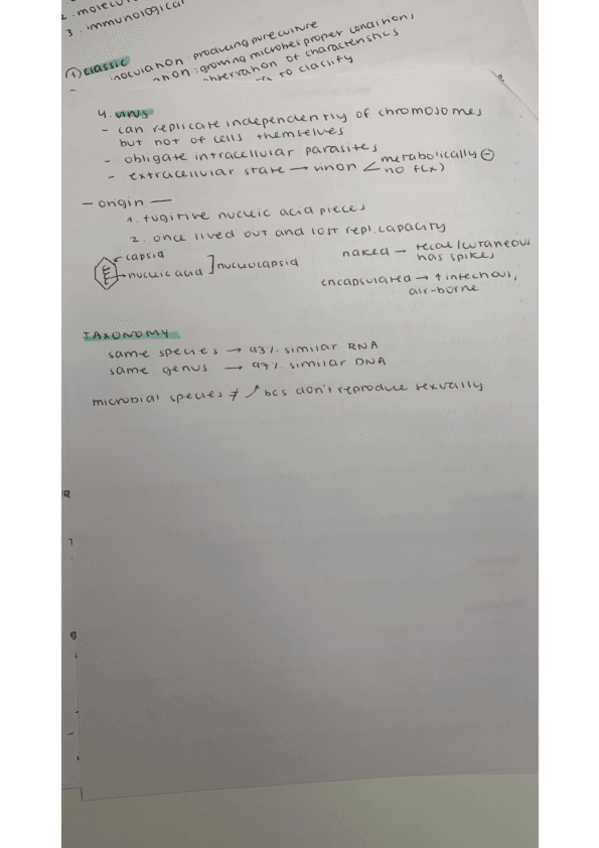 2. molecul
3. immunological
① classic
inoculation producing pure culture
growing microbes proper condition,
observation of characteristics
to classify
4. virus
- can replicate independently of chromosomes
but not of cells themselves
- obligate intracellular parasites
- extracellular state → virion < metabolically ⊖
no f(x)
- origin —
1. fugitive nucleic acid pieces
2. once lived out and lost repl. capacity
capsid
nucleic acid ] nucleocapsid
naked → fecal/cutaneous
has spikes
encapsulated → ↑ infectious,
air-borne
TAXONOMY
same species → 93% similar RNA
same genus → 97% similar DNA
microbial species ≠ ↗ bcs don't reproduce sexually